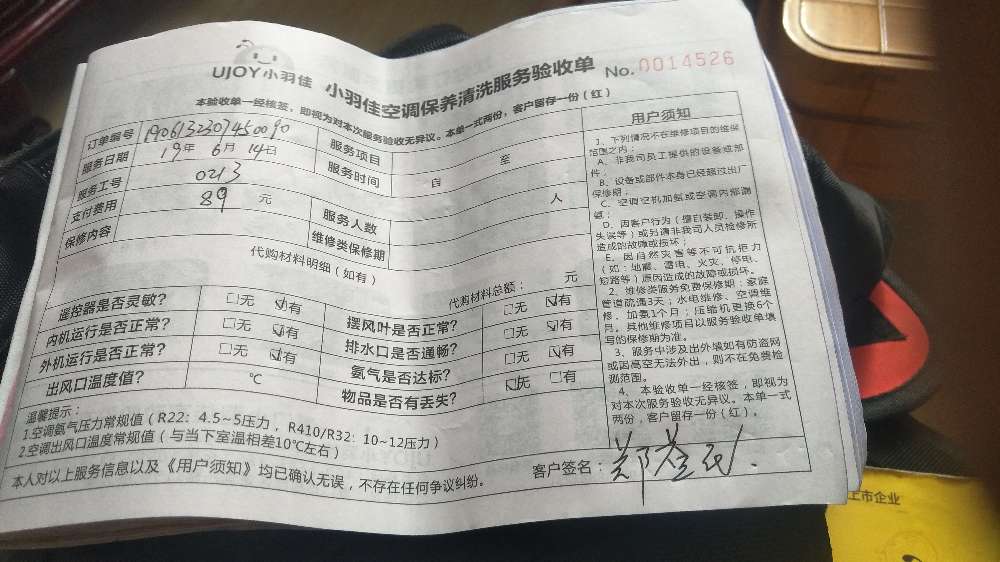 UJOY小羽佳 小羽佳空调保养清洗服务验收单 No.0014526
本验收单一经核签，即视为对本次服务验收无异议。本单一式两份，客户留存一份（红）
订单编号 1906132307450090 服务项目
服务日期 19年 6月 14日 服务时间 自 至
服务工号 0213
支付费用 89 元 服务人数 人
保修内容 维修类保修期
代购材料明细（如有） 代购材料总额： 元
遥控器是否灵敏？ □无 ☑有 摆风叶是否正常？ □无 ☑有
内机运行是否正常？ □无 ☑有 排水口是否通畅？ □无 ☑有
外机运行是否正常？ □无 ☑有 氨气是否达标？ □无 ☑有
出风口温度值？ ℃ 物品是否有丢失？ ☑无 □有
温馨提示：
1.空调氨气压力常规值（R22: 4.5~5压力，R410/R32: 10~12压力）
2.空调出风口温度常规值（与当下室温相差10℃左右）
本人对以上服务信息以及《用户须知》均已确认无误，不存在任何争议纠纷。
客户签名：
用户须知
1、下列情况不在维修项目的维保
范围之内：
A、非我司员工提供的设备或部
件；
B、设备或部件本身已经超过出厂
保修期；
C、空调空机加氨或空调内部漏
氨；
D、因客户行为（擅自装卸、操作
失误等）或另请非我司人员检修所
造成的故障或损坏；
E、因自然灾害等不可抗拒力
（如：地震、雷电、火灾、停电、
短路等）原因造成的故障或损坏。
2、维修类服务免费保修期：家庭
管道疏通3天；水电维修、空调维
修、加氨1个月；压缩机更换6个
月。其他维修项目以服务验收单填
写的保修期为准。
3、服务中涉及出外墙如有防盗网
或因高空无法外出，则不在免费检
测范围。
4、本验收单一经核签，即视为
对本次服务验收无异议。本单一式
两份，客户留存一份（红）。
上市企业